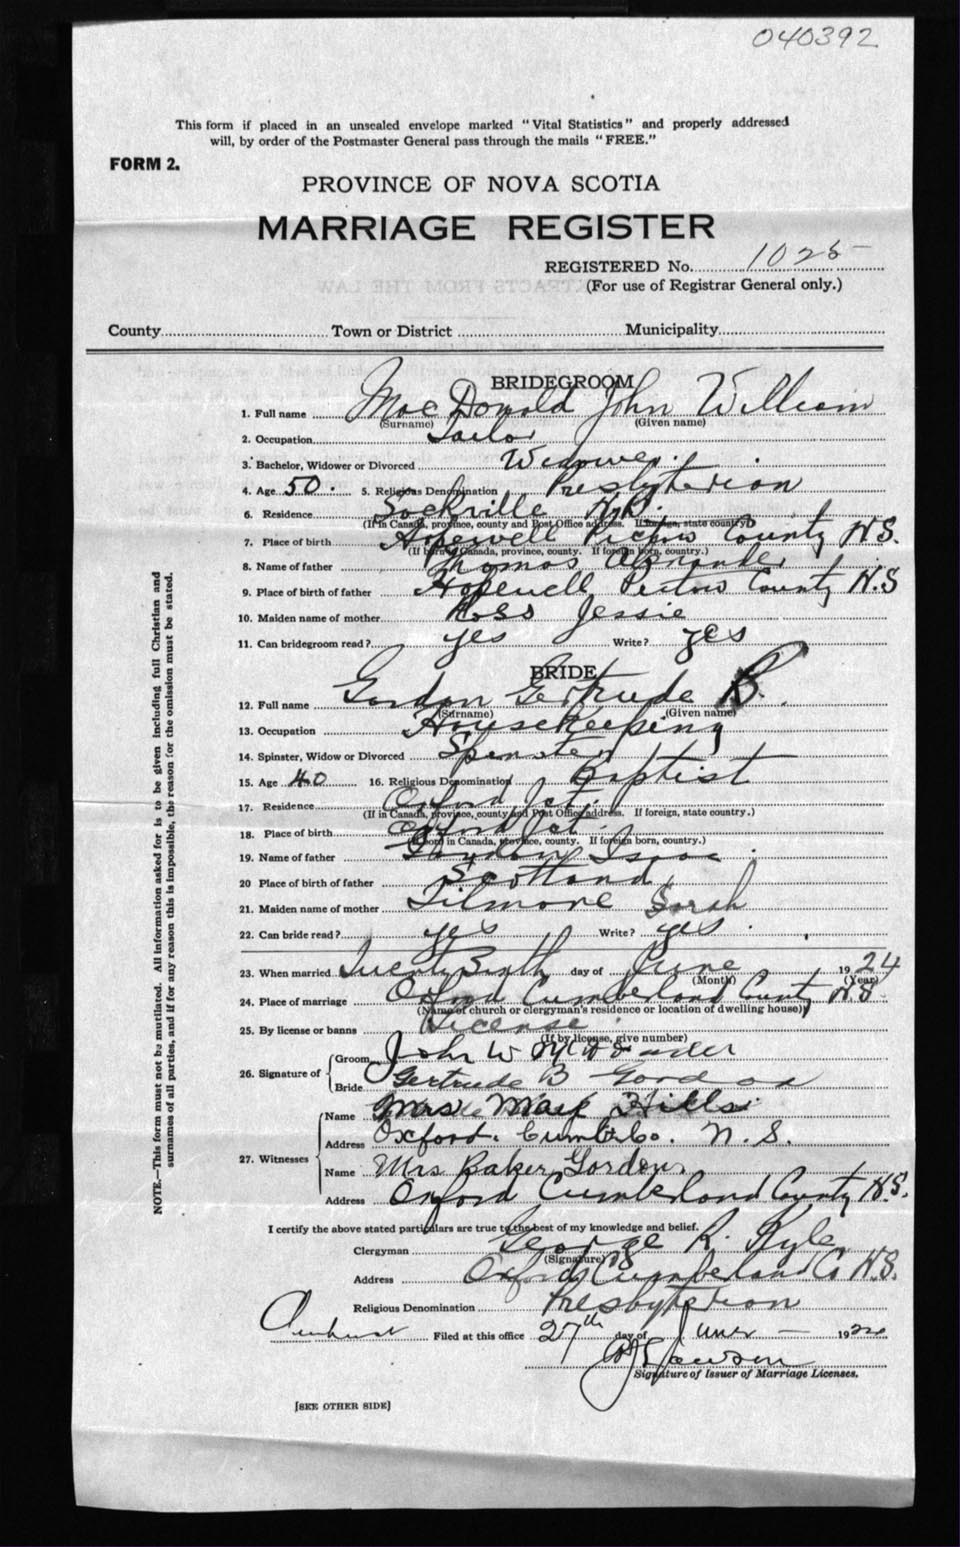 040392
This form if placed in an unsealed envelope marked "Vital Statistics" and properly addressed
will, by order of the Postmaster General pass through the mails "FREE."
FORM 2.
PROVINCE OF NOVA SCOTIA
MARRIAGE REGISTER
REGISTERED No. 1025
(For use of Registrar General only.)
County Town or District Municipality
BRIDEGROOM
1. Full name MacDonald John William
(Surname) (Given name)
2. Occupation Tailor
3. Bachelor, Widower or Divorced Widower.
4. Age 50. 5. Religious Denomination Presbyterian
6. Residence Sackville N.B.
(If in Canada, province, county and Post Office address. If foreign, state country)
7. Place of birth Hopewell Pictou County N.S.
(If born in Canada, province, county. If foreign born, country.)
8. Name of father Thomas Alexander
9. Place of birth of father Hopewell Pictou County N.S
10. Maiden name of mother Ross Jessie
11. Can bridegroom read? yes Write? yes
BRIDE
12. Full name Gordon Gertrude B.
(Surname) (Given name)
13. Occupation Housekeeping
14. Spinster, Widow or Divorced Spinster
15. Age 40 16. Religious Denomination Baptist
17. Residence Oxford Jct.
(If in Canada, province, county and Post Office address. If foreign, state country.)
18. Place of birth Oxford Jct.
(If born in Canada, province, county. If foreign born, country.)
19. Name of father Gordon Isaac
20 Place of birth of father Scotland
21. Maiden name of mother Filmore Sarah
22. Can bride read? yes Write? yes.
23. When married Twenty Sixth day of June 1924
(Month) (Year)
24. Place of marriage Oxford Cumberland County N.S.
(Name of church or clergyman's residence or location of dwelling house)
25. By license or banns License
(If by license, give number)
26. Signature of Groom John W
Bride Gertrude B Gordon
27. Witnesses Name Mrs Hills
Address Oxford. Cumb. Co. N.S.
Name Mrs Baker Gordon
Address Oxford Cumberland County N.S.
I certify the above stated particulars are true to the best of my knowledge and belief.
Clergyman George R. Kyle
(Signature)
Address Oxford Cumberland Co N.S.
Religious Denomination Presbyterian
Amherst Filed at this office 27th day of June 1924
Lawson
Signature of Issuer of Marriage Licenses.
[SEE OTHER SIDE]
NOTE.—This form must not be mutilated. All information asked for is to be given including full Christian and
surnames of all parties, and if for any reason this is impossible, the reason for the omission must be stated.